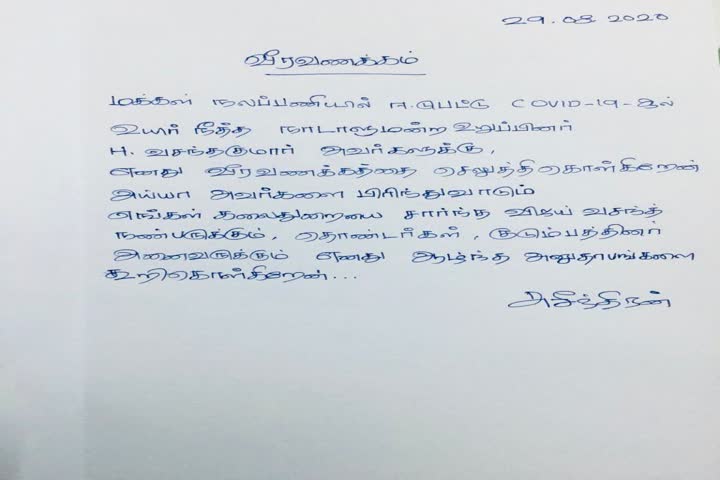 29.08.2020
வீரவணக்கம்
மக்கள் நலப்பணியில் ஈடுபட்டு COVID-19-ஆல்
உயிர் நீத்த நாடாளுமன்ற உறுப்பினர்
H. வசந்தகுமார் அவர்களுக்கு,
எனது வீரவணக்கத்தை செலுத்திகொள்கிறேன்
அய்யா அவர்களை பிரிந்துவாடும்
எங்கள் கலைதுறையை சார்ந்த விஜய் வசந்த்
நண்பருக்கும், தொண்டர்கள், குடும்பத்தினர்
அனைவருக்கும் எனது ஆழ்ந்த அனுதாபங்களை
கூறிகொள்கிறேன்...